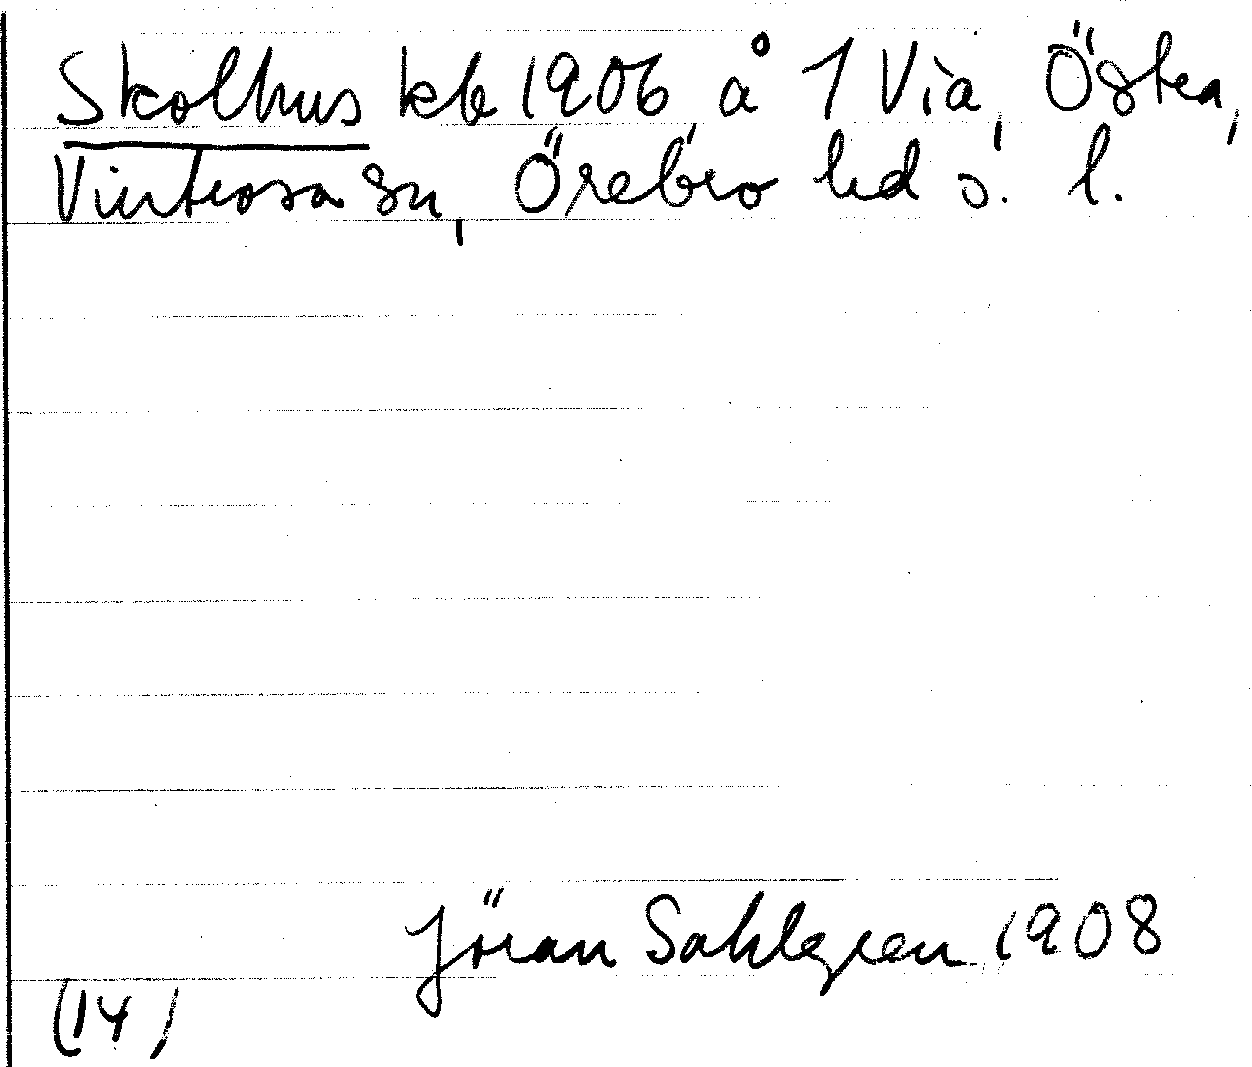 Skolhus kb 1906 å 1 Via, Östra,
Vintrosa sn, Örebro hd ö. l.
Jöran Sahlgren 1908
(14)